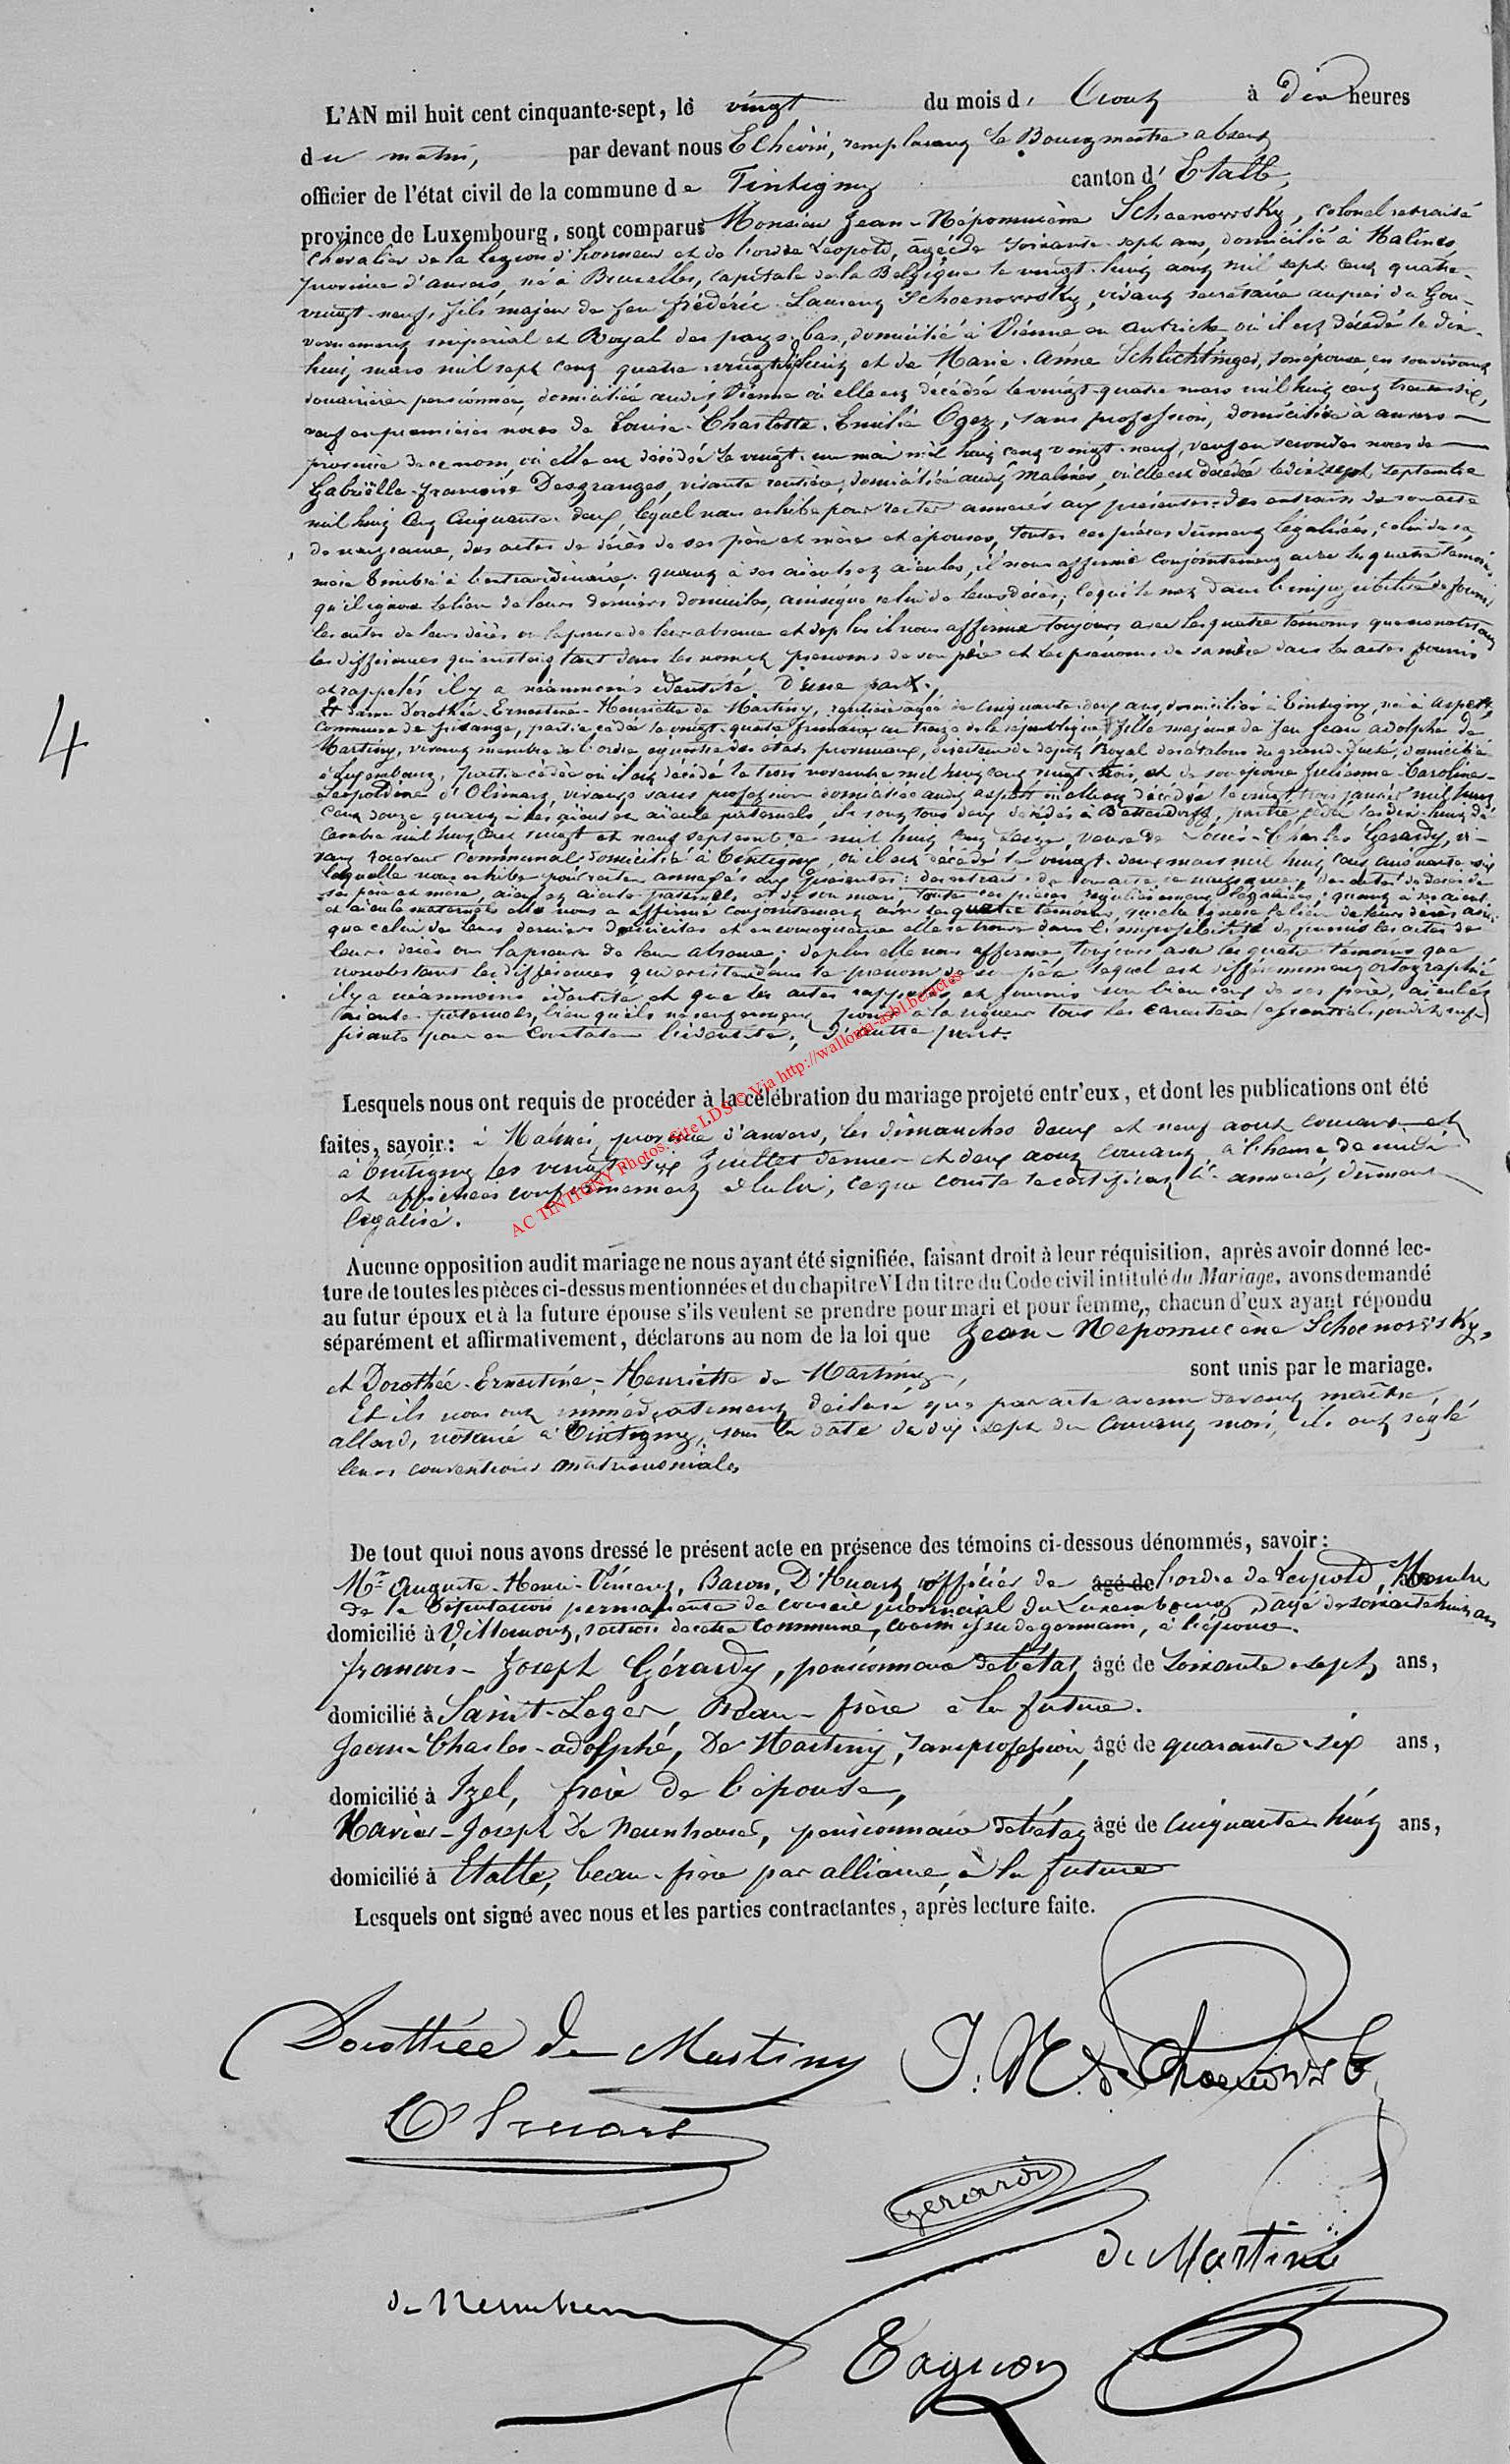 L'AN mil huit cent cinquante-sept, le vingt du mois d' Aout à dix heures
du matin, par devant nous Echevin, remplacant le Bourgmestre absent
officier de l'état civil de la commune de Tintigny canton d'Etalle,
province de Luxembourg, sont comparus Monsieur Jean-Népomucène Schoenowsky, colonel retraité
chevalier de la légion d'honneur et de l'ordre Léopold, âgé de soixante-sept ans, domicilié à Malines
province d'anvers, né à Bruxelles, capitale de la Belgique le vingt-huit aout mil sept cent quatre-
vingt-neuf, fils majeur de feu Frédéric-Laurent Schoenowsky, vivant secrétaire auprès du Gou-
vernement impérial et Royal des pays-bas, domicilié à Vienne en Autriche où il est décédé le dix-
huit mars mil sept cent quatre-vingt et de Marie-Anne Schlichtinger, son épouse, en son vivant
douairière pensionnée, domiciliée audit Vienne où elle est décédée le vingt-quatre mars mil huit cent trente-six,
veuf en premières noces de Louise-Charlotte-Emilie Ogez, sans profession, domiciliée à anvers
province de ce nom, où elle est décédée le vingt-un mai mil huit cent vingt-neuf, veuf en secondes noces de
Gabrielle-Françoise Desgranges, vivante rentière, domiciliée audit Malines, où elle est décédée le dix sept septembre
mil huit cent cinquante-deux, lequel nous exhibe pour rester annexés aux présentes: des extraits de son acte
de naissance, des actes de décès de ses père et mère et épouses, toutes ces pièces dûment légalisées, celui de sa
mère timbré à l'extraordinaire. quant à ses aïeuls et aïeules, il nous affirme conjointement avec les quatre témoins
qu'il ignore le lieu de leurs derniers domiciles, ainsi que celui de leurs décès; ce qui le met dans l'impossibilité de fournir
les actes de leurs décès ou la preuve de leur absence et de plus il nous affirme toujours avec les quatre témoins que nonobstant
les différences qui existent tant dans les nom et prénoms de son père et les prénoms de sa mère dans les actes fournis
et rappelés il y a néanmoins identité. D'une part.
Et Dame Dorothée-Ernestine-Henriette de Martiny, rentière âgée de cinquante-deux ans, domiciliée à Tintigny, née à Aspelt,
commune de Frisange, partie cédée le vingt-quatre frimaire an treize de la république fille majeure de feu Jean adolphe de
Martiny, vivant membre de l'ordre équestre des états provinciaux, directeur du dépôt Royal des étalons du grand-Duché, domicilié
à Luxembourg, partie cédée où il est décédé le trois novembre mil huit cent vingt-trois, et de son épouse Julienne-Caroline-
Léopoldine d'Olimart, vivante sans profession domiciliée audit Aspelt où elle est décédée le vingt trois janvier mil huit
cent douze quant à ses aïeul et aïeule paternels, ils sont tous deux décédés à Bettendorff, partie cédée les dix-huit dé-
cembre mil huit cent vingt et neuf septembre mil huit cent, veuve de Louis-Charles Gerardy, vi-
vant receveur communal domicilié à Tintigny, où il est décédé le vingt-deux mars mil huit cent cinquante-six
laquelle nous exhibe pour rester annexés aux présentes: des extraits de son acte de naissance, des actes de décès de
ses père et mère, aïeul et aïeule paternels et de son mari, toutes ces pièces régulièrement légalisées; quant à ses aïeul
et aïeule maternels elle nous a affirmé conjointement avec les quatre témoins, qu'elle ignore le lieu de leurs décès ainsi
que celui de leurs derniers domiciles et en conséquence elle se trouve dans l'impossibilité de fournir les actes de
leurs décès ou la preuve de leur absence; de plus elle nous affirme, toujours avec les quatre témoins que
nonobstant les différences qui existent dans le prénom de son père lequel est différemment ortographié
il y a néanmoins identité et que les actes rappelés et fournis sont bien ceux de ses père, aïeul et
aïeule paternels, bien qu'ils ne renferment point à la rigueur tous les caractères essentiels suf-
fisants pour en constater l'identité, D'autre part.
Lesquels nous ont requis de procéder à la célébration du mariage projeté entr'eux, et dont les publications ont été
faites, savoir: à Malines, province d'anvers, les dimanches deux et neuf aout courant et
à Tintigny les vingt-six Juillet dernier et deux aout courant, à l'heure de midi
et affichées conformément à la loi, ce que conste le certificat ci-annexé, dûment
légalisé.
Aucune opposition audit mariage ne nous ayant été signifiée, faisant droit à leur réquisition, après avoir donné lec-
ture de toutes les pièces ci-dessus mentionnées et du chapitre VI du titre du Code civil intitulé du Mariage, avons demandé
au futur époux et à la future épouse s'ils veulent se prendre pour mari et pour femme, chacun d'eux ayant répondu
séparément et affirmativement, déclarons au nom de la loi que Jean-Népomucène Schoenowsky,
et Dorothée-Ernestine-Henriette de Martiny, sont unis par le mariage.
Et ils nous ont immédiatement déclaré que par acte avenu devant maître
allard, notaire à Tintigny, sous la date du dix-sept du courant mois, ils ont réglé
leurs conventions matrimoniales
De tout quoi nous avons dressé le présent acte en présence des témoins ci-dessous dénommés, savoir:
Mr Auguste-Henri-Vincent, Baron, D'Huart, officier de âgé de l'ordre de Léopold, Membre
de la Députation permanente du conseil provincial du Luxembourg, âgé de soixante huit ans
domicilié à Villemont, section de cette commune, cousin issu de germain, à l'épouse.
François-Joseph Gérardy, pensionnaire de l'état, âgé de soixante-sept ans,
domicilié à Saint-Leger, Beau-frère à la future.
Jean-Charles-adolphe, De Martiny, sans profession, âgé de quarante-six ans,
domicilié à Izel, frère de l'épouse,
Xavier-Joseph De Neunheuser, pensionnaire de l'état âgé de cinquante-huit ans,
domicilié à Etalle, beau-frère par alliance, à la future
Lesquels ont signé avec nous et les parties contractantes, après lecture faite.
4
AC TINTIGNY Photos. Site LDS © Via http://wallonia-asbl.be/actes
Dorothée de Martiny J. N. Schoenowsky
D'Huart
Gerardi
de Martini
de Neunheuser
Eagnon